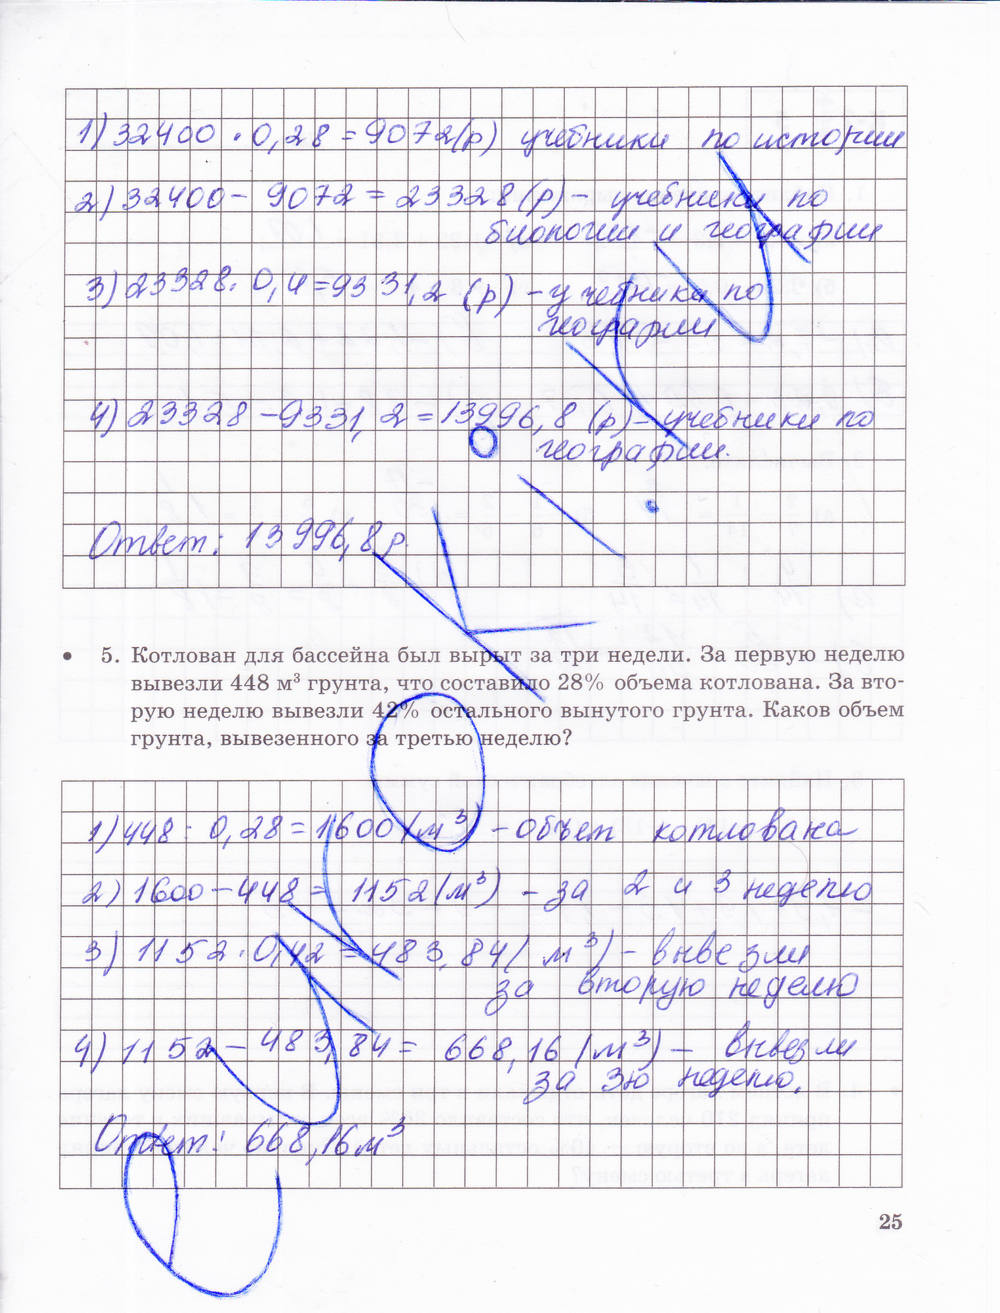 1) 32400 · 0,28 = 9072 (р) учебники по истории
2) 32400 – 9072 = 23328 (р) – учебники по
биологии и географии
3) 23328 · 0,4 = 9331,2 (р) – учебники по
географии
4) 23328 – 9331,2 = 13996,8 (р) – учебники по
географии.
Ответ: 13996,8 р.
• 5. Котлован для бассейна был вырыт за три недели. За первую неделю
вывезли 448 м³ грунта, что составило 28% объема котлована. За вто-
рую неделю вывезли 42% остального вынутого грунта. Каков объем
грунта, вывезенного за третью неделю?
1) 448 : 0,28 = 1600 (м³) – объем котлована
2) 1600 – 448 = 1152 (м³) – за 2 и 3 неделю
3) 1152 · 0,42 = 483,84 (м³) – вывезли
за вторую неделю
4) 1152 – 483,84 = 668,16 (м³) – вывезли
за 3ю неделю.
Ответ: 668,16 м³
25